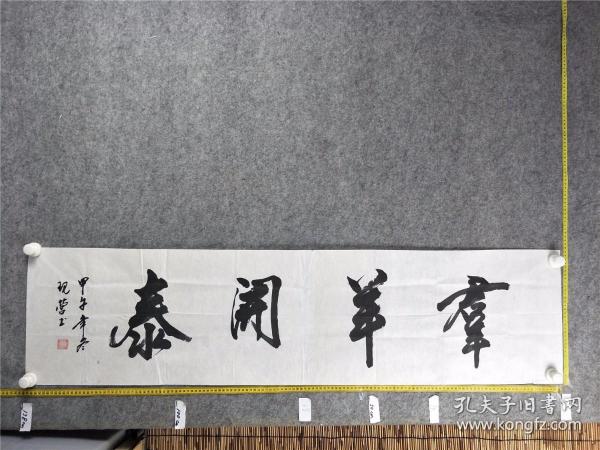 羣羊開泰
甲午年冬
孔夫子旧书网
www.kongfz.com